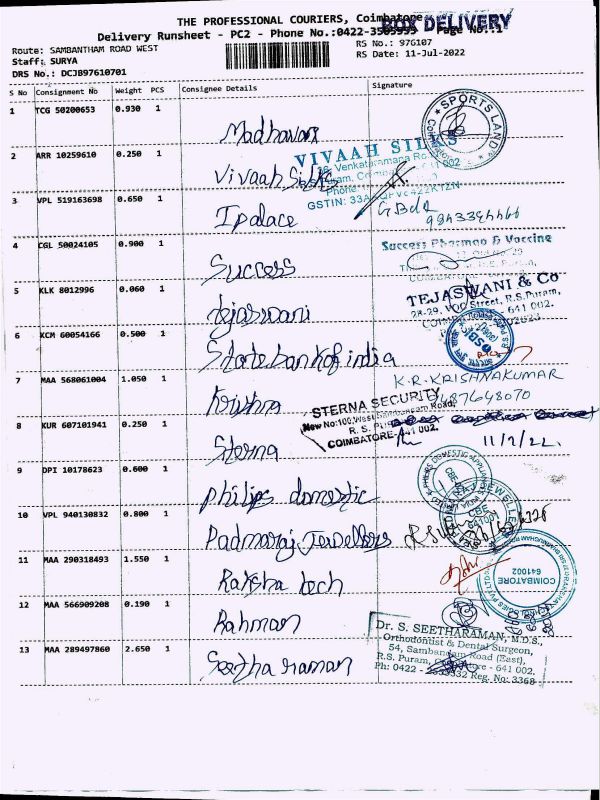 THE PROFESSIONAL COURIERS, Coimbatore
BOX DELIVERY
Delivery Runsheet - PC2 - Phone No.:0422-3505999 Page No.:1
Route: SAMBANTHAM ROAD WEST
RS No.: 976107
Staff: SURYA
RS Date: 11-Jul-2022
DRS No.: DCJB97610701
S No Consignment No Weight PCS Consignee Details Signature
1 TCG 50200653 0.930 1 Madhavan
SPORTS LAND
2 ARR 10259610 0.250 1 Vivaah Silks
VIVAAH SILKS
Venkataramana Ro
Phone
GSTIN: 33A
3 VPL 519163698 0.650 1 Ipalace
4 CGL 50024105 0.900 1 Success
Success Pharmao & Vaccine
5 KLK 8012996 0.060 1 tejaswani
TEJASWANI & Co
28-29, VOC Street, R.S.Puram,
641 002.
6 KCM 60054166 0.500 1 State bank of india
SBI
7 MAA 568061004 1.050 1 Krishna
K.R.KRISHNAKUMAR
8 KUR 607101941 0.250 1 Sterna
STERNA SECURITY
New No:100,West Sambandam Road,
R. S. Puram
COIMBATORE-641 002.
11/7/22.
9 DPI 10178623 0.600 1 philips domestic
10 VPL 940130832 0.800 1 Padmaraj Jewellers
CBE
641001
11 MAA 290318493 1.550 1 Raksha tech
COIMBATORE
641002
12 MAA 566909208 0.190 1 Rahman
13 MAA 289497860 2.650 1 Seetha raman
Dr. S. SEETHARAMAN, M.D.S.,
Orthodontist & Dental Surgeon,
54, Sambandam Road (East),
R.S. Puram, Coimbatore - 641 002.
Ph: 0422 - Reg. No: 3368